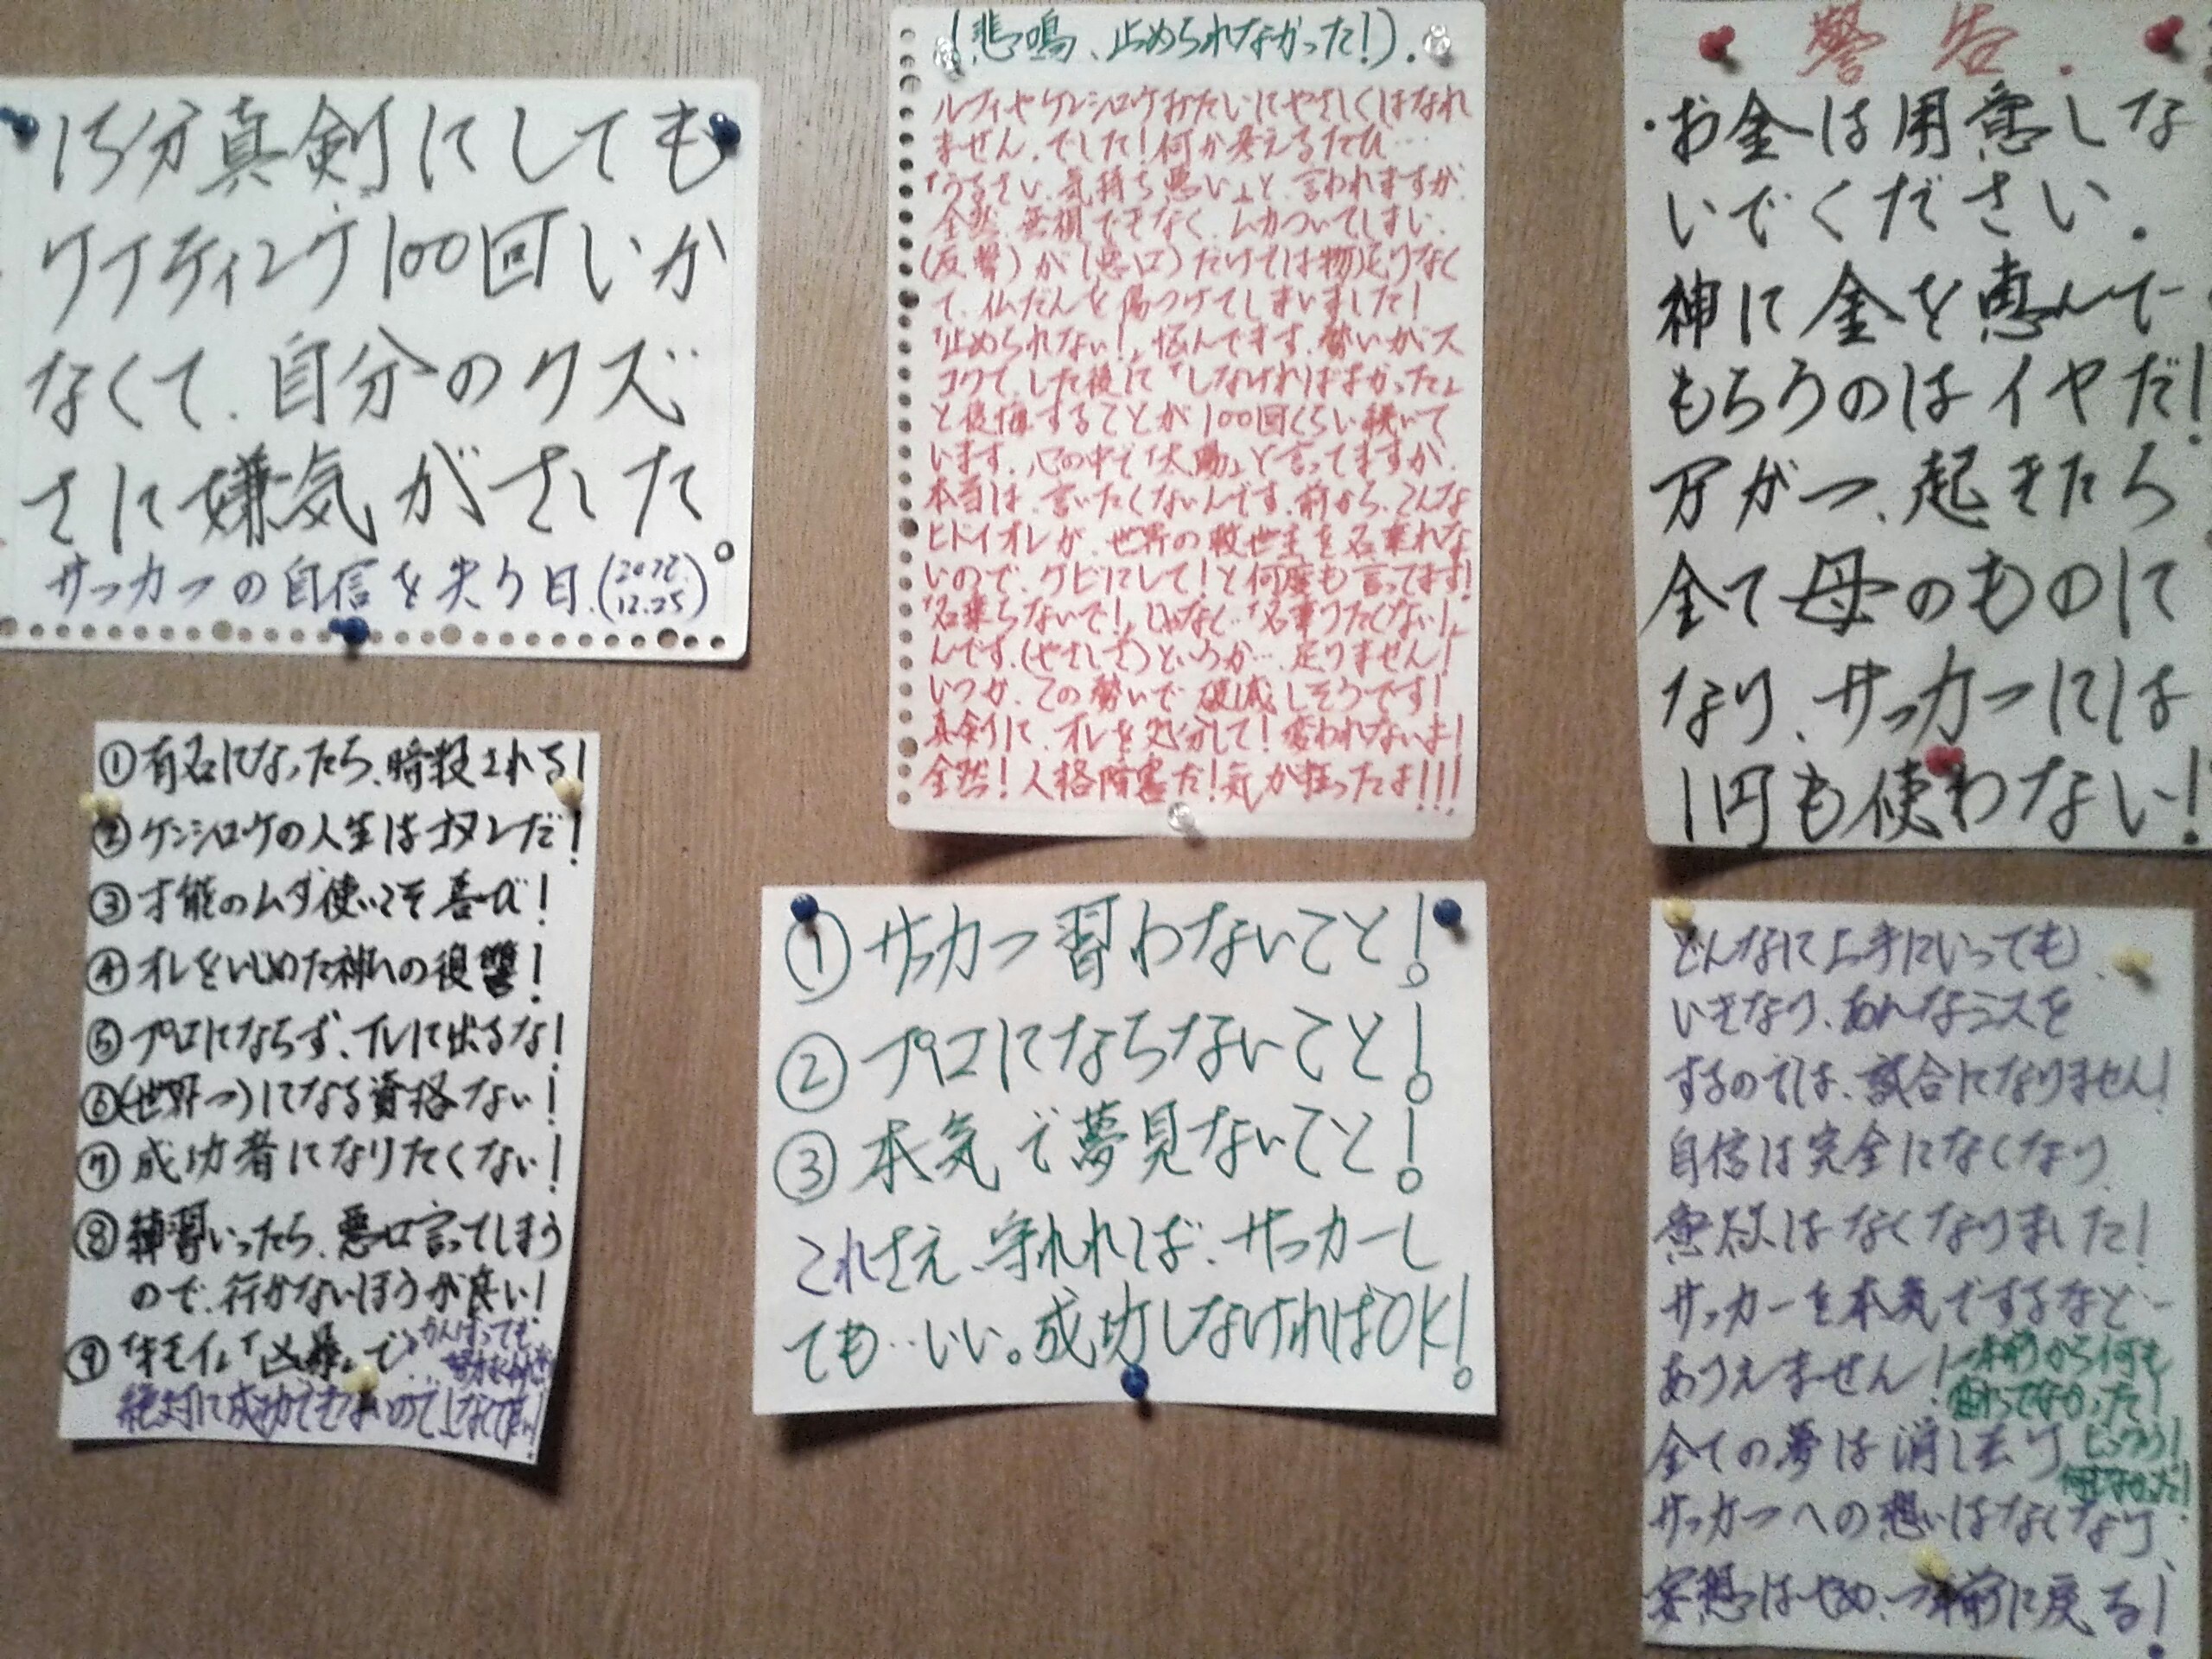 15分真剣にしても
リフティング100回いか
なくて、自分のクズ
さに嫌気がさした。
サッカーの自信を失う日.(
12.25)
(悲鳴、止められなかった!).
ルフィやケンシロウみたいにやさしくはなれ
ません.でした!何か考えるたび…
「うるさい、気持ち悪い」と、言われますが、
全然、無視できなく、ムカついてしまい、
(反撃)が(悪口)だけでは物足りなく
て、仏だんを傷つけてしまいました!
「止められない!」悩んでます.勢いがス
ゴクて、した後に「しなければよかった」
と後悔することが100回くらい続いて
います.心の中で「太陽」と言ってますが、
本当は、言いたくないんです.前から、こんな
ヒドイオレが、世界の救世主を名乗れな
いので、クビにして!と何度も言ってます!
「名乗らないで!」じゃなく…「名乗りたくない!」
んです.(やさしさ)というか…足りません!
いつか、この勢いで破滅しそうです!
真剣に、オレを処分して!変われないよ!
全然!人格障害だ!気が狂ったよ!!!
警告.
・お金は用意しな
いでください.
神に金を恵んで
もらうのはイヤだ!
万が一、起きたら
全て母のものに
なり、サッカーには
1円も使わない!
①有名になったら、暗殺される!
②ケンシロウの人生はオレだ!
③才能のムダ使いこそ喜び!
④オレをいじめた神への復讐!
⑤プロにならず、TVに出るな!
⑥(世界一)になる資格ない!
⑦成功者になりたくない!
⑧練習いったら、悪口言ってしまう
ので、行かないほうが良い!
⑨「キモイ」「凶暴」で、がんばっても
絶対に成功できないので
①サッカー習わないこと!
②プロにならないこと!
③本気で夢見ないこと!
これさえ、守れれば、サッカーし
ても…いい。成功しなければOK!
どんなに上手にいっても、
いきなり、あんなミスを
するのでは、試合になりません!
自信は完全になくなり、
意欲はなくなりました!
サッカーを本気でするなど…
ありえません!
一年前から何も
変わってなかった!
全ての夢は消し去り
サッカーへの想いはなくなり、
妄想はやめ、一年前に戻る!